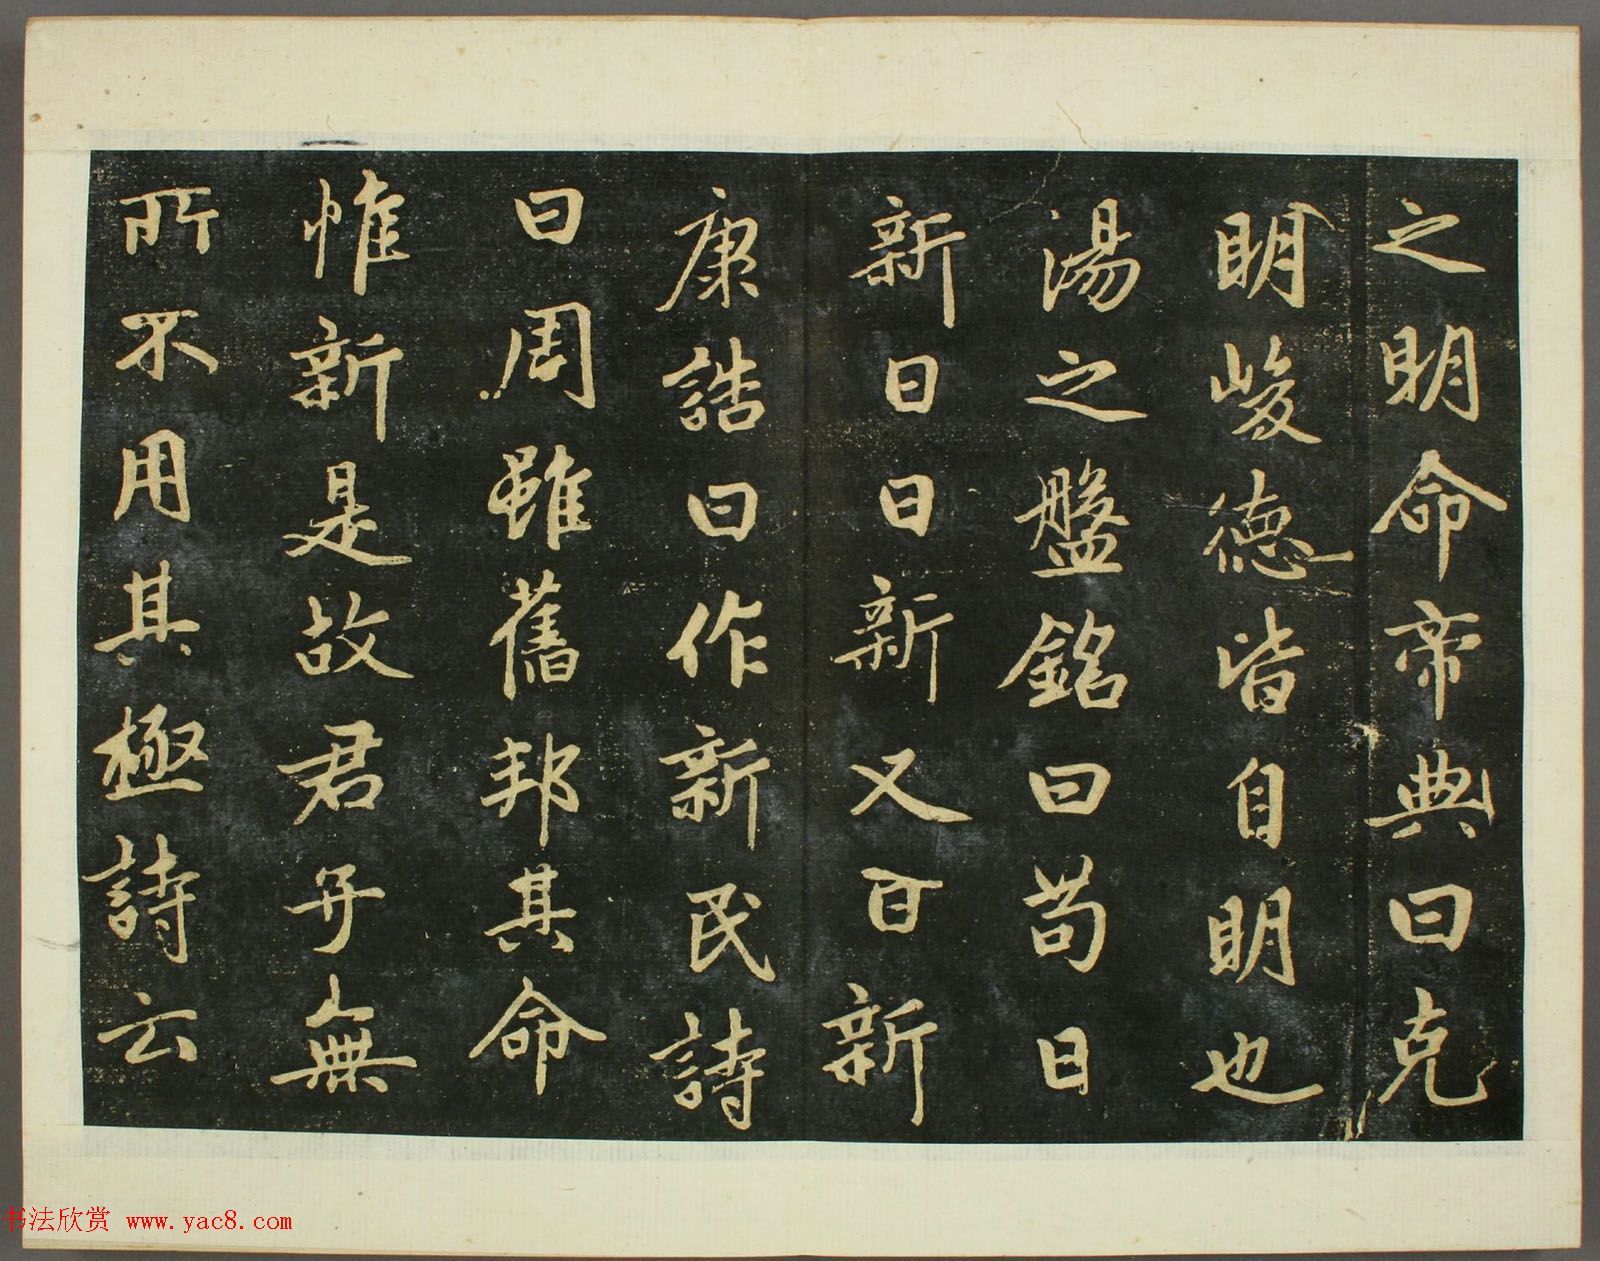 之明命帝典曰克
明峻德皆自明也
湯之盤銘曰苟日
新日日新又日新
康誥曰作新民詩
曰周雖舊邦其命
惟新是故君子無
所不用其極詩云
书法欣赏 www.yac8.com